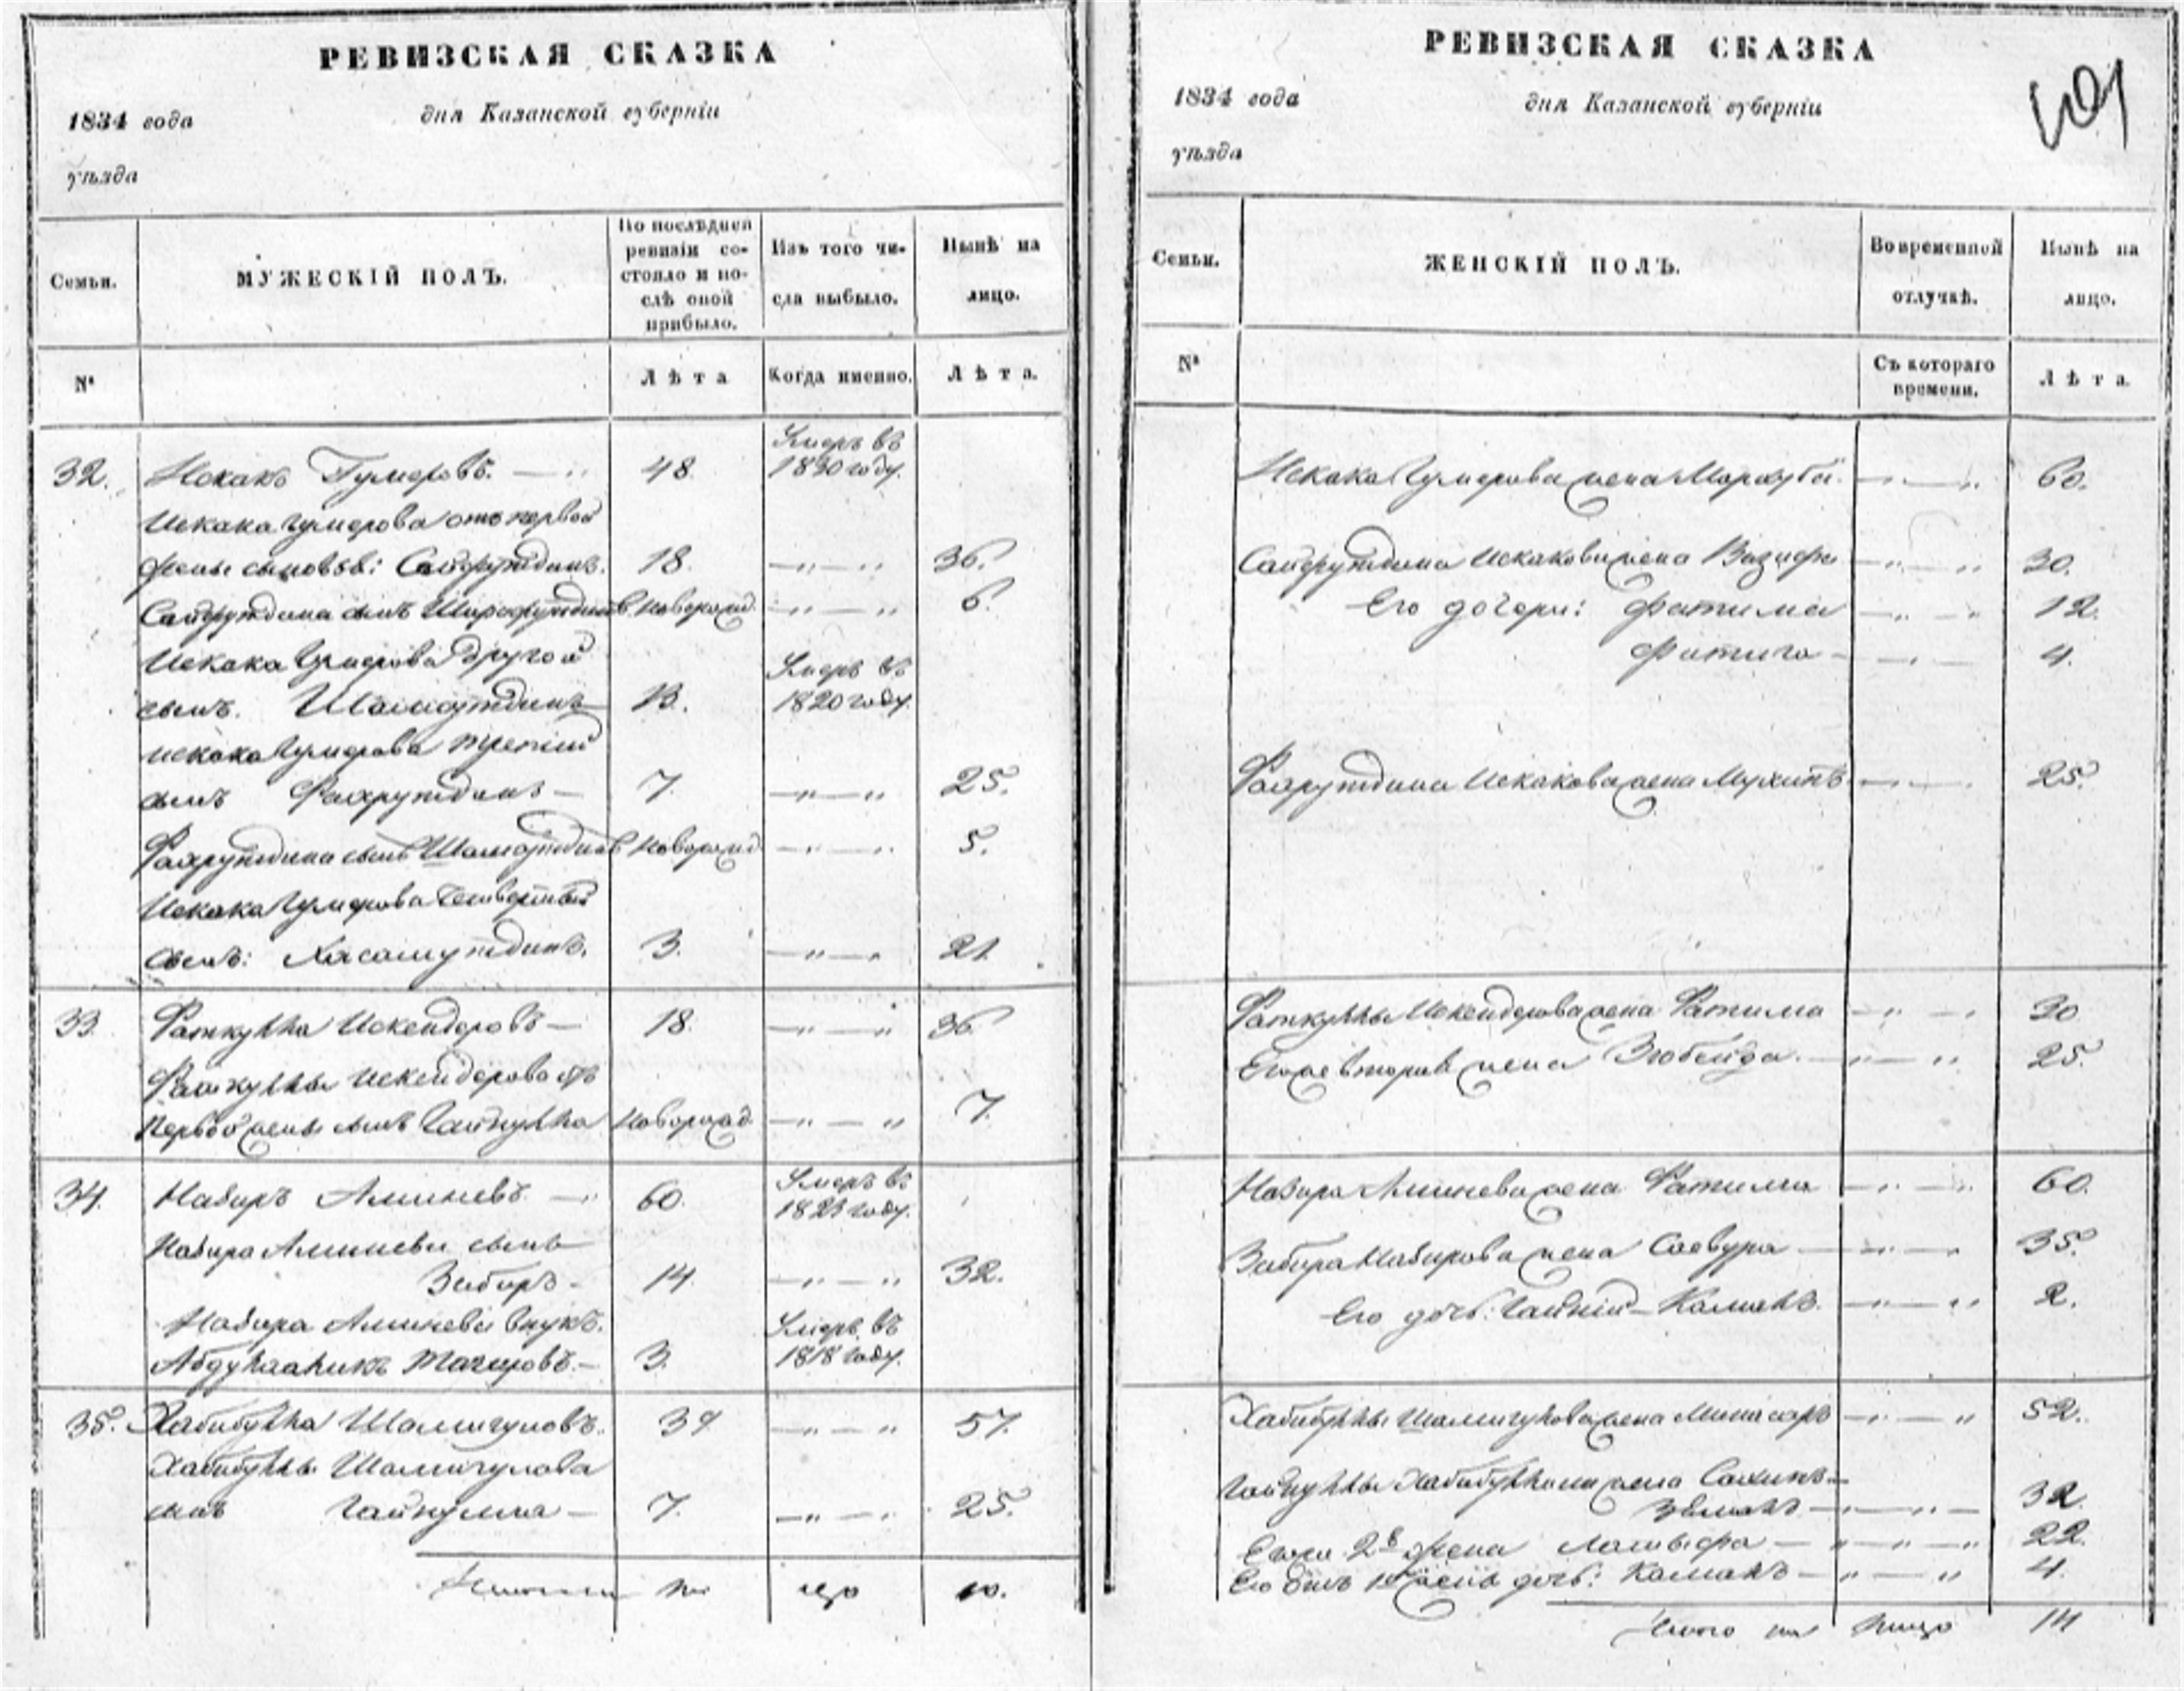 РЕВИЗСКАЯ СКАЗКА
1834 года
дня Казанской губернiи
уѣзда
Семьи.
МУЖЕСКIЙ ПОЛЪ.
По послѣдней
ревизiи со-
стояло и по-
слѣ оной
прибыло.
Изъ того чи-
сла выбыло.
Нынѣ на
лицо.
№
Лѣта
Когда именно.
Лѣта.
32. Искакъ Гумеровъ. 48. Умеръ въ 1830 году.
Искака Гумерова отъ первой
жены сыновья: Сайфутдинъ. 18. 36.
Сайфутдина сынъ Шарафутдинъ новорожд. 6.
Искака Гумерова другой
сынъ. 13. Умеръ въ 1820 году.
Искака Гумерова третiй
сынъ Фахрутдинъ 7. 25.
Фахрутдина сынъ новорожд 5.
Искака Гумерова четвертый
сынъ: Хасамутдинъ. 3. 21.
33. Фаткулла Искендеровъ 18. 36.
Фаткуллы Искендерова отъ
первой жены сынъ Гайнулла новорожд 7.
34. Набиръ Аминевъ 60. Умеръ въ 1823 году.
Набира Аминева сынъ
Забиръ 14. 32.
Набира Аминева внукъ.
Тагировъ. 3. Умеръ въ 1818 году.
35. Хабибулла Шамигуловъ. 39 57.
Хабибуллы Шамигулова
сынъ Гайнулла 7. 25.
Итого на лицо 10.
РЕВИЗСКАЯ СКАЗКА
1834 года
дня Казанской губернiи
уѣзда
101
Семьи.
ЖЕНСКIЙ ПОЛЪ.
Во временной
отлучкѣ.
Нынѣ на
лицо.
№
Съ котораго
времени.
Лѣта
Искака Гумерова жена 60.
Сайфутдина Искакова жена 30.
Его дочери: Фатима 12.
4.
Фахрутдина Искакова жена 25.
Фаткуллы Искендерова жена Фатима 30
Его же вторая жена Зюбейда. 25.
Набира Аминева жена Фатима 60.
Забира Набирова жена 35.
Его дочь: Камалъ. 2.
Хабибуллы Шамигулова жена 52.
Гайнуллы Хабибуллина жена
32.
Его же 2я жена 22.
Его дочь: Камалъ 4.
Итого на лицо 14